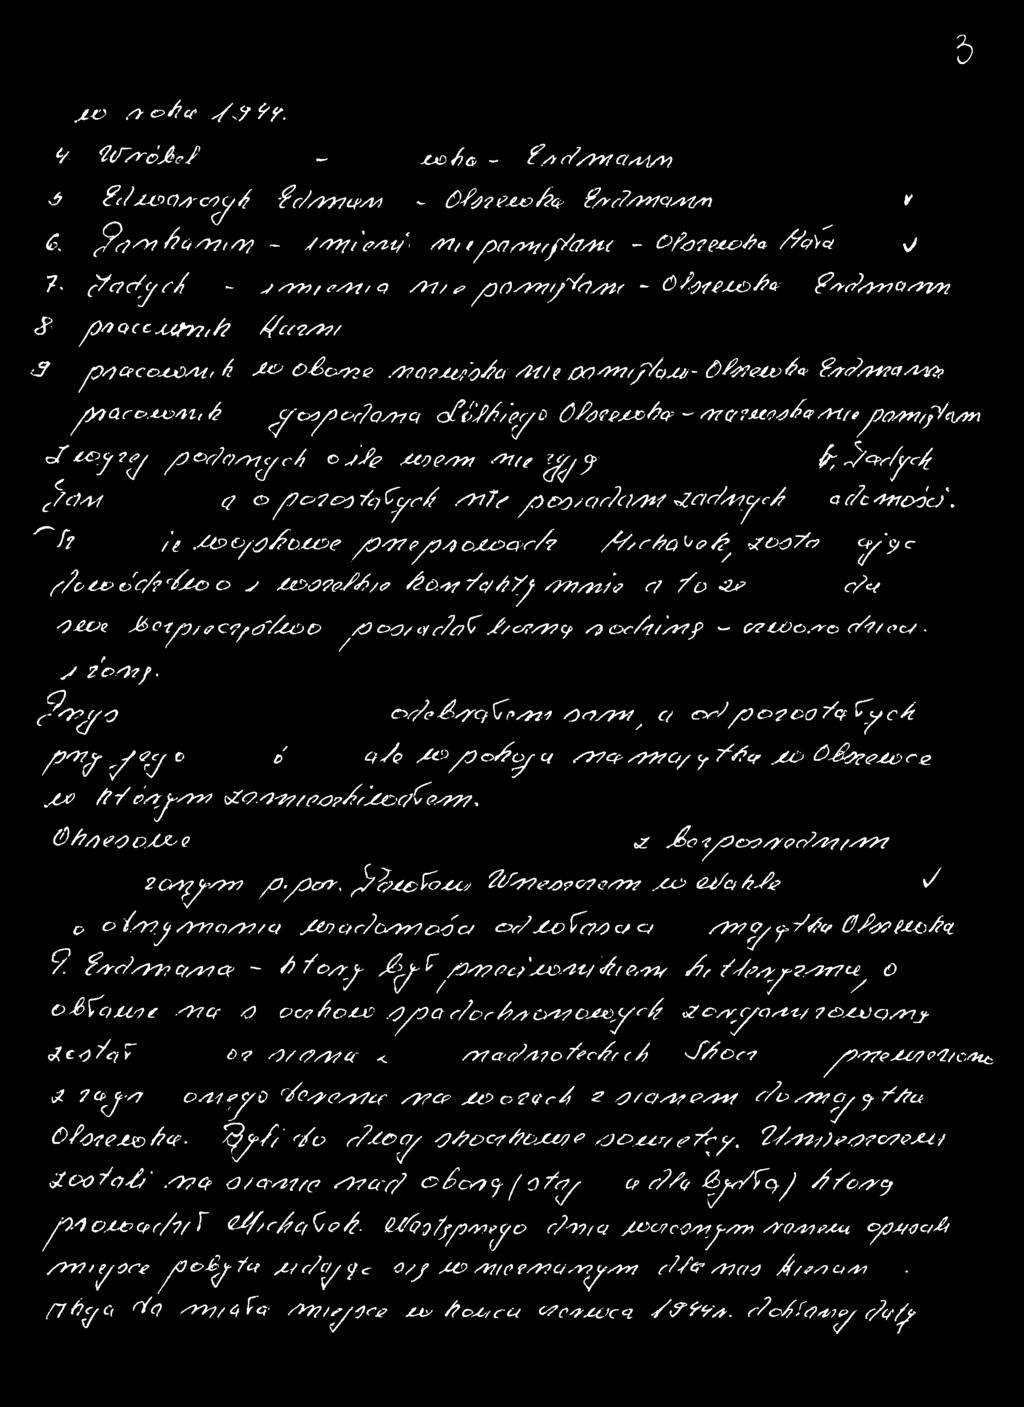 3
w roku 1944.
4 Wróbel - wka - Erdmann
5 Edwarczyk Edmun - Olszewka Erdmann
6. Pankanin - imieni nie pamiętam - Olszewka Mała
7. Jadych - imienia nie pamiętam - Olszewka Erdmann
8 pracownik Kuzni
9 pracownik w oborze nazwiska nie pamiętam - Olszewka Erdmann
pracownik gospodarza Olszewka - nazwiska nie pamiętam
z wyżej podanych o ile wiem nie żyją Jadych
Jan a o pozostałych nie posiadam żadnych adomości.
ie wojskowe przeprowadz Michałek, zosta ając
dowództwo i wszelkie kontakty mnie a to ze da
swe bezpieczeństwo posiadał liczną rodzinę - czworo dzieci
i żonę.
Przys odebrałem sam, a od pozostałych
przy jego ó ale w pokoju na majątku w Olszewce
w którym zamieszkiwałem.
Okresowe z bezpośrednim
zonym p. por. Pawłem Wrzeszczem w Nakle
o otrzymaniu wiadomości od własci majątku Olszewka
P. Erdmana - który był przeciwnikiem hitleryzmu, o
obławie na s oczków spadochronowych zorganizowany
został oz siana z nadnoteckich łhoci przewieziono
z zagr onego terenu na wozach z sianem do majątku
Olszewka. Byli to dwaj skoczkowie sowietcy. Umieszczeni
zostali na sianie nad oborą (staj a dla bydła) którą
prowadził Michałek. Następnego dnia wczesnym ranem opuscili
miejsce pobytu udając się w nieznanym dla nas kierun .
Akcja ta miała miejsce w koncu czerwca 1944r. dokładnej daty